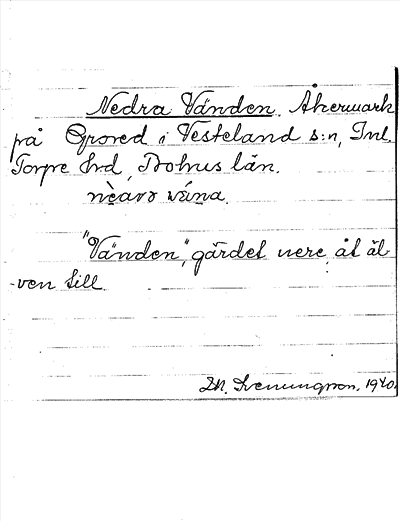 Nedra Vänden. Åkermark
på Grored i Vesteland s:n, Inl.
Torpe hrd, Bohus län.
nèavo
"Vänden", gärdet nere åt äl-
ven till.
M. Svenungson. 1940.